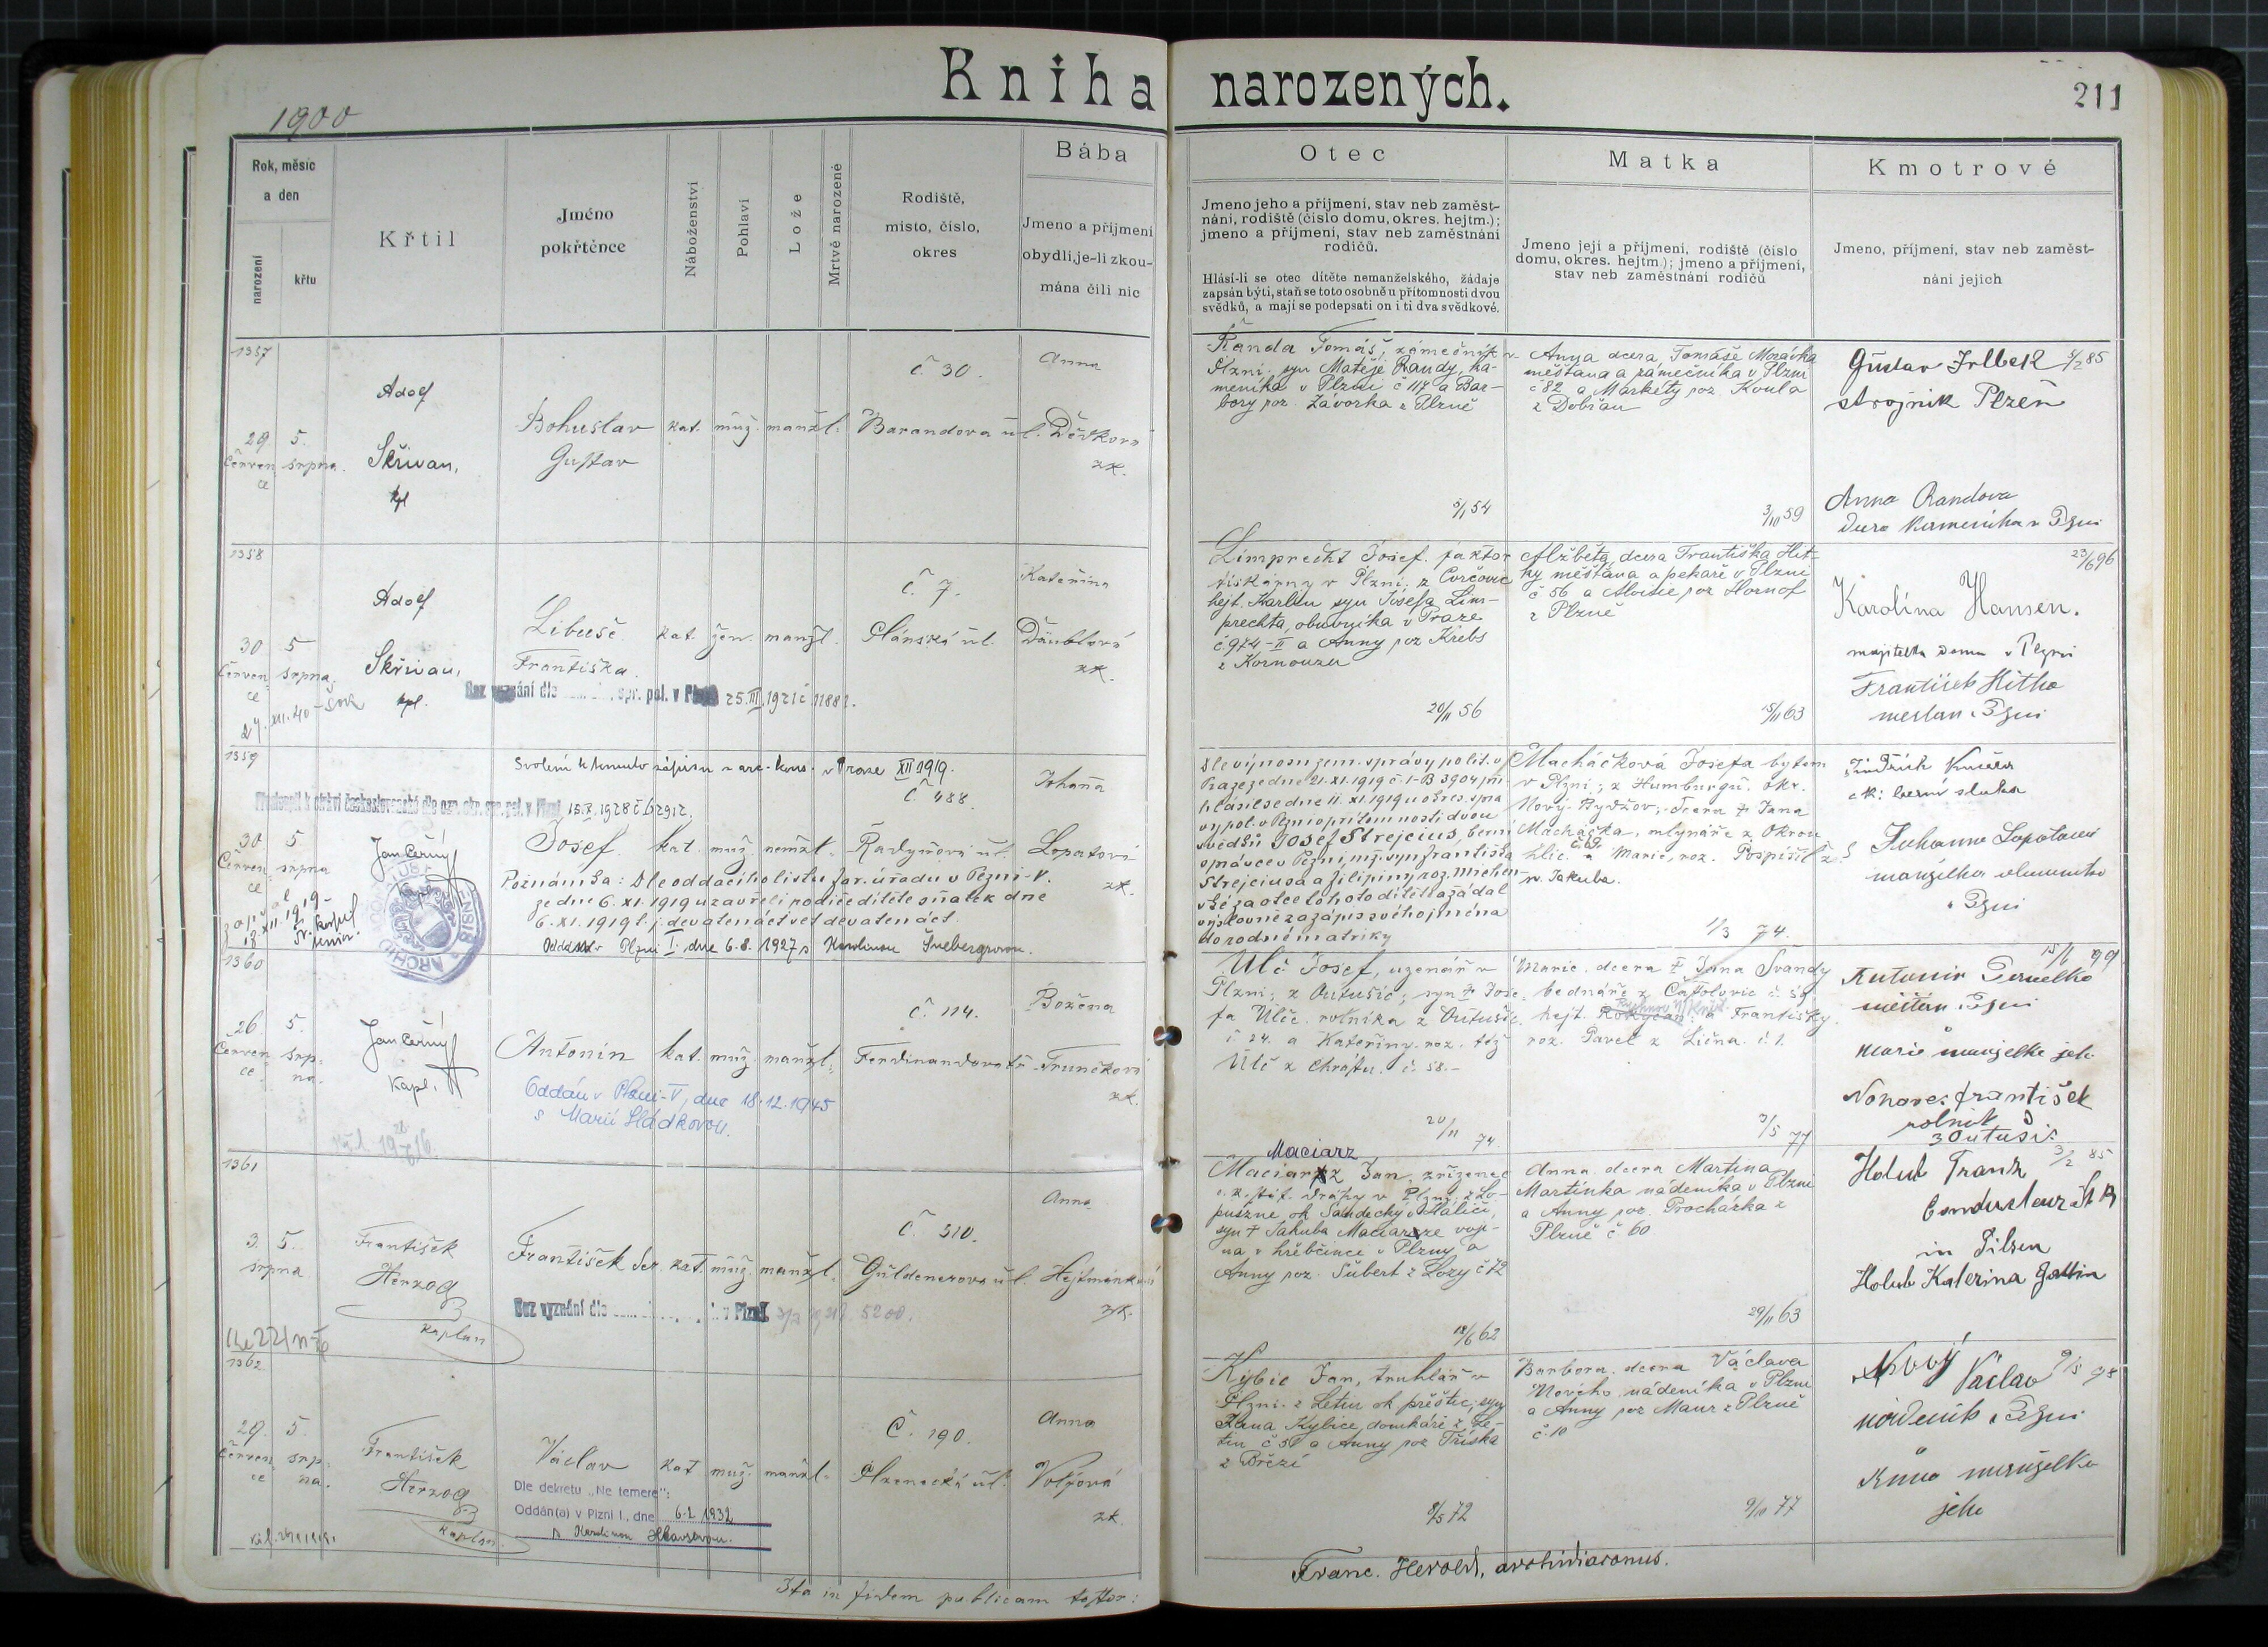 Kniha narozených.
1900
211
Rok, měsíc
a den
narození
křtu
Křtil
Jméno
pokřtěnce
Náboženství
Pohlaví
Lože
Mrtvě narozené
Rodiště,
místo, číslo,
okres
Bába
Jmeno a příjmení
obydlí, je-li zkou-
mána čili nic
Otec
Jmeno jeho a příjmení, stav neb zaměst-
nání, rodiště (číslo domu, okres. hejtm.);
jmeno a příjmení, stav neb zaměstnání
rodičů.
Hlásí-li se otec dítěte nemanželského, žádaje
zapsán býti, staň se toto osobně u přítomnosti dvou
svědků, a mají se podepsati on i ti dva svědkové.
Matka
Jmeno její a příjmení, rodiště (číslo
domu, okres. hejtm.); jmeno a příjmení,
stav neb zaměstnání rodičů
Kmotrové
Jmeno, příjmení, stav neb zaměst-
nání jejich
1357
29 5.
červen srpna.
ce
Adolf
Skřivan,
kpl
Bohuslav
Gustav
kat. muž. manžl.
č 30.
Barandova ul.
Anna
Děd­kova
zk.
Randa Tomáš, zámečník v
Plzni, syn Matěje Randy, ka-
meníka v Plzni č 117 a Bar-
bory roz. Závorka z Plzně
5/1 54
Anna dcera Tomáše Morávka
měšťana a zámečníka v Plzni
č 82 a Markéty roz. Koula
z Dobřan
3/10 59
Gustav 5/2 85
strojník Plzeň
Anna Randova
dcera kameníka v Plzni
1358
30 5
červen srpna
ce
Adolf
Skřivan,
kpl.
Libuše
Františka.
kat. žen. manžl.
Bez vyznání dle spr. pol. v Plzni 25.III.1921 č 11881.
č. 7.
Plánská ul.
Kateřina
Däublová
zk.
Limprecht Josef, faktor
tiskárny v Plzni, z
hejt. Karlín syn Josefa Lim-
prechta, obuvníka v Praze
č. 974-II a Anny roz Krebs
z Kornouzu
20/11 56
Alžběta, dcera Františka Hit-
ky měšťana a pekaře v Plzni
č 56 a Aloisie roz Hornof
z Plzně
15/11 63
23/6 96
Karolína Hansen.
majitelka domu v Plzni
František Hitka
mešťan v Plzni
1359
Svolení k tomuto zápisu z arc. kons. v Praze XII 1919.
15.X.1928 č 62912.
30 5
červen srpna
ce
Jan Černý
kapl.
Josef.
kat. muž. nemžl.
č. 488.
Radyňová ul.
Johana
Lopatová
zk.
Poznámka: Dle oddacího listu far. úřadu v Plzni-V.
ze dne 6. XI. 1919 uzavřeli rodiče dítěte sňatek dne
6. XI. 1919 t. j. devatenáct set devatenáct.
Oddán v Plzni I. dne 6.8.1927 s Karolinou Šnebergrovou.
Dle výnosu zem. správy polit. v
Praze ze dne 21. XI. 1919 č. 1-B 3904 při-
hlásil se dne 11. XI. 1919 u okres. sprá
vy pol. v Plzni v přítomnosti dvou
svědků Josef Strejcius, berní
správce v Plzni, mž. syn Františka
Strejciusa a Filipiny roz. Michen-
vší za otce tohoto dítěte a žádal
výslovně za zápis svého jména
do rodné matriky
Macháčková Josefa bytem
v Plzni; z Humburgu, okr.
Nový-Bydžov; dcera † Jana
Macháčka, mlynáře z Okrou
hlic č. a Marie, roz. Pospíšil z
sv. Jakuba.
1/3 74.
Jindřich Kučera
c.k. berní sluha
Johanna Lopatová
manželka
v Plzni
1360
26 5.
červen srp-
ce. na.
Jan Černý
Kapl.
Antonín
kat. muž. manžl.
č. 114.
Ferdinandova tř.
Božena
Trunečková
zk.
Oddán v Plzni-V, dne 18.12.1945
s Marií Sládkovou.
Ulč Josef, uzenář v
Plzni; z Outušic; syn † Jose-
fa Ulče, rolníka z Outušic
č. 24. a Kateřiny roz. též
Ulč z Chrástu. č. 58.-
20/11 74.
Marie, dcera † Jana Švandy
bednáře z Častolovic č. 59
hejt. a Františky
roz. Pavel z Lična č. 1.
3/5 77
15/1 99
Antonín
měšťan v Plzni
a
Marie manželka jeho
František
rolník
z Outušic
1361
3. 5.
srpna
František
Herzog
kaplan
František Ser.
kat. muž. manžl.
č. 510.
Güldenerova ul.
Anna
Hejtmánková
zk.
Bez vyznání dle v Plzni 5200.
Maciarz
Maciarz Jan, zřízenec
c. k. stát. dráhy v Plzni, z Lo-
puszne ok Sandecky v Haliči,
syn † Jakuba Maciarze voji-
na v hřebčinci v Plzny a
Anny roz. Šubert z Lozy č 72
18/6 62
Anna, dcera Martina
Martínka nádeníka v Plzni
a Anny roz. Procházka z
Plzně č 60
29/11 63
3/2 85
Holub Frank
Conducteur St B
in Pilsen
Holub Katerina Gattin
1362
29. 5.
červen srp-
ce na.
František
Herzog
kaplan.
Václav
kat muž. manžl.
č. 190.
Plzenecká ul.
Anna
Volfová
zk.
Dle dekretu „Ne temere“:
Oddán(a) v Plzni I., dne 6.2.1932
s Karolinou Hlavsovou.
Kybic Jan, truhlář v
Plzni, z Letin ok přeštic, syn
Jana Kybice, domkáře z Le-
tin č 50 a Anny roz Tříska
z Březí
8/5 72
Barbora, dcera Václava
Nového, nádeníka v Plzni
a Anny roz Maur z Plzně
č. 10
9/10 77
Nový Václav
nádeník v Plzni
a
Anna manželka
jeho
Ita in fidem publicam testor:
Franc. Herold, archidiaconus.